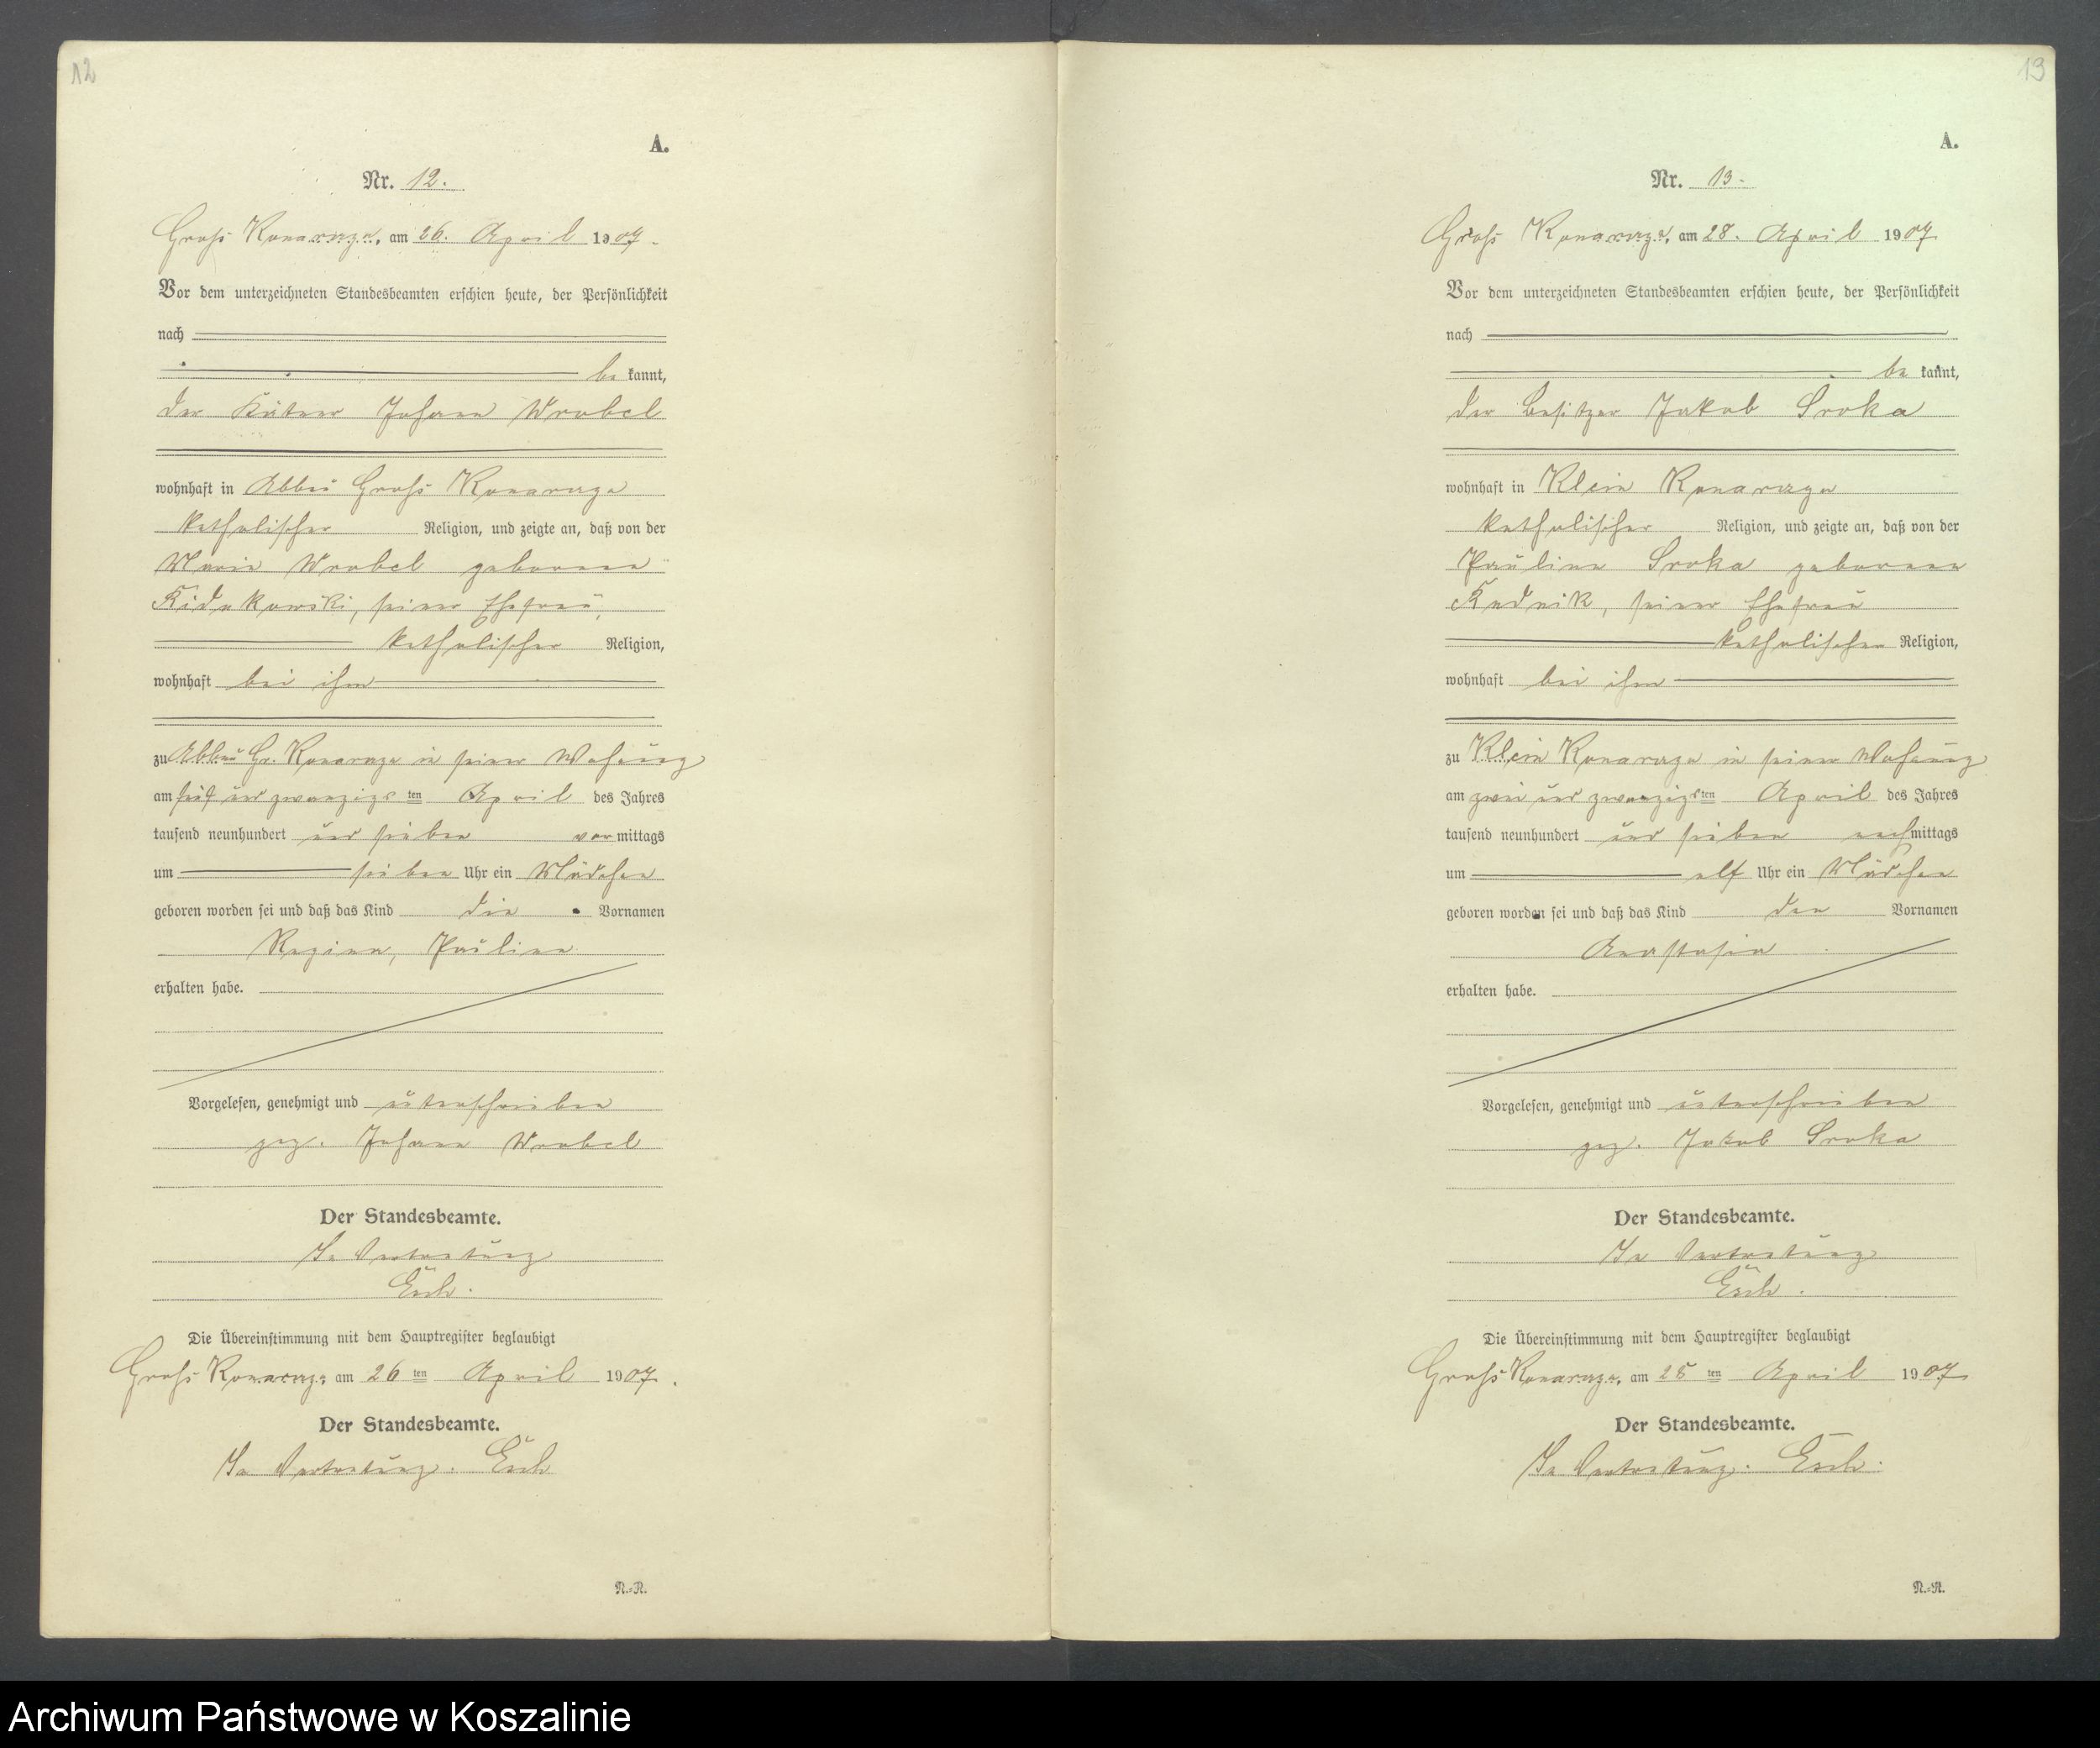 12
A.
Nr. 12.
Groß Konarczyn, am 26. April 1907.
Vor dem unterzeichneten Standesbeamten erschien heute, der Persönlichkeit
nach
be kannt,
der Kätner Johann Wrobel
wohnhaft in Abbau Groß Konarczyn
katholischer Religion, und zeigte an, daß von der
Marie Wrobel geborene
seiner Ehefrau,
katholischer Religion,
wohnhaft bei ihm
zu Abbau Gr. Konarczyn in seiner Wohnung
am fünf und zwanzigsten April des Jahres
tausend neunhundert und sieben vor mittags
um sieben Uhr ein Mädchen
geboren worden sei und daß das Kind die Vornamen
Regina, Pauline
erhalten habe.
Vorgelesen, genehmigt und unterschrieben
gez. Johann Wrobel
Der Standesbeamte.
In Vertretung
Esch.
Die Übereinstimmung mit dem Hauptregister beglaubigt
Groß Konarczyn, am 26 ten April 1907.
Der Standesbeamte.
In Vertretung. Esch
N.-R.
13
A.
Nr. 13.
Groß Konarczyn, am 28. April 1907
Vor dem unterzeichneten Standesbeamten erschien heute, der Persönlichkeit
nach
be kannt,
der Besitzer Jakob Sroka
wohnhaft in Klein Konarczyn
katholischer Religion, und zeigte an, daß von der
Pauline Sroka geborene
seiner Ehefrau
katholischen Religion,
wohnhaft bei ihm
zu Klein Konarczyn in seiner Wohnung
am zwei und zwanzigsten April des Jahres
tausend neunhundert und sieben nach mittags
um elf Uhr ein Mädchen
geboren worden sei und daß das Kind den Vornamen
Anastasia
erhalten habe.
Vorgelesen, genehmigt und unterschrieben
gez. Jakob Sroka
Der Standesbeamte.
In Vertretung
Esch.
Die Übereinstimmung mit dem Hauptregister beglaubigt
Groß Konarczyn, am 28 ten April 1907
Der Standesbeamte.
In Vertretung. Esch.
N.-R.
Archiwum Państwowe w Koszalinie